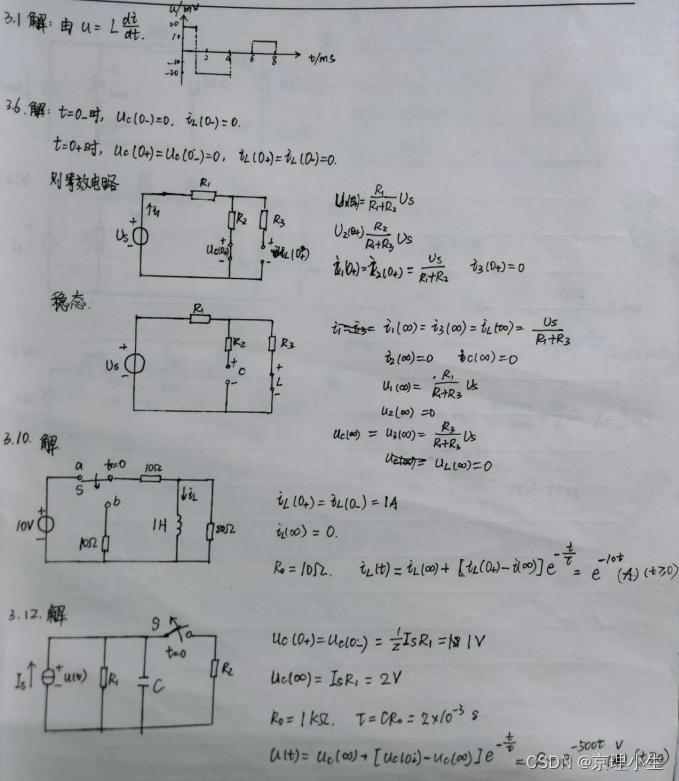 3.1 解: 由 u = L di/dt.
u/mV
20
10
-10
-20
2 4 6 8 t/ms
3.6. 解: t=0₋时, uc(0₋)=0, iL(0₋)=0.
t=0₊时, uc(0₊)=uc(0₋)=0, iL(0₊)=iL(0₋)=0.
则等效电路
R₁
Us + - i₁
R₂ R₃
uc(0₊) iL(0₊)
U₁(0₊)= R₁/(R₁+R₂) Us
U₂(0₊) R₂/(R₁+R₃) Us
i₁(0₊)=i₂(0₊)= Us/(R₁+R₂) i₃(0₊)=0
稳态.
R₁
Us + -
R₂ R₃
C L
i₁(∞)=i₃(∞)=iL(∞)= Us/(R₁+R₃)
i₂(∞)=0 ic(∞)=0
u₁(∞)= R₁/(R₁+R₃) Us
u₂(∞)=0
uc(∞) = u₃(∞)= R₃/(R₁+R₃) Us
uL(∞)=0
3.10. 解.
a S t=0 10Ω
b
10V + -
10Ω
1H iL
iL(0₊)=iL(0₋)=1A.
iL(∞)=0.
R₀=10Ω. iL(t)=iL(∞)+[iL(0₊)-i(∞)]e^(-t/τ) = e^(-10t) (A) (t≥0)
3.12. 解
S t=0
Is + - u(t) R₁ C R₂
uc(0₊)=uc(0₋)= 1/2 IsR₁= 1V
uc(∞)= IsR₁=2V
R₀=1kΩ. τ=CR₀=2×10⁻³ s
u(t)= uc(∞)+[uc(0₊)-uc(∞)]e^(-t/τ) = e^(-500t) V (t≥0)
CSDN @京理小生